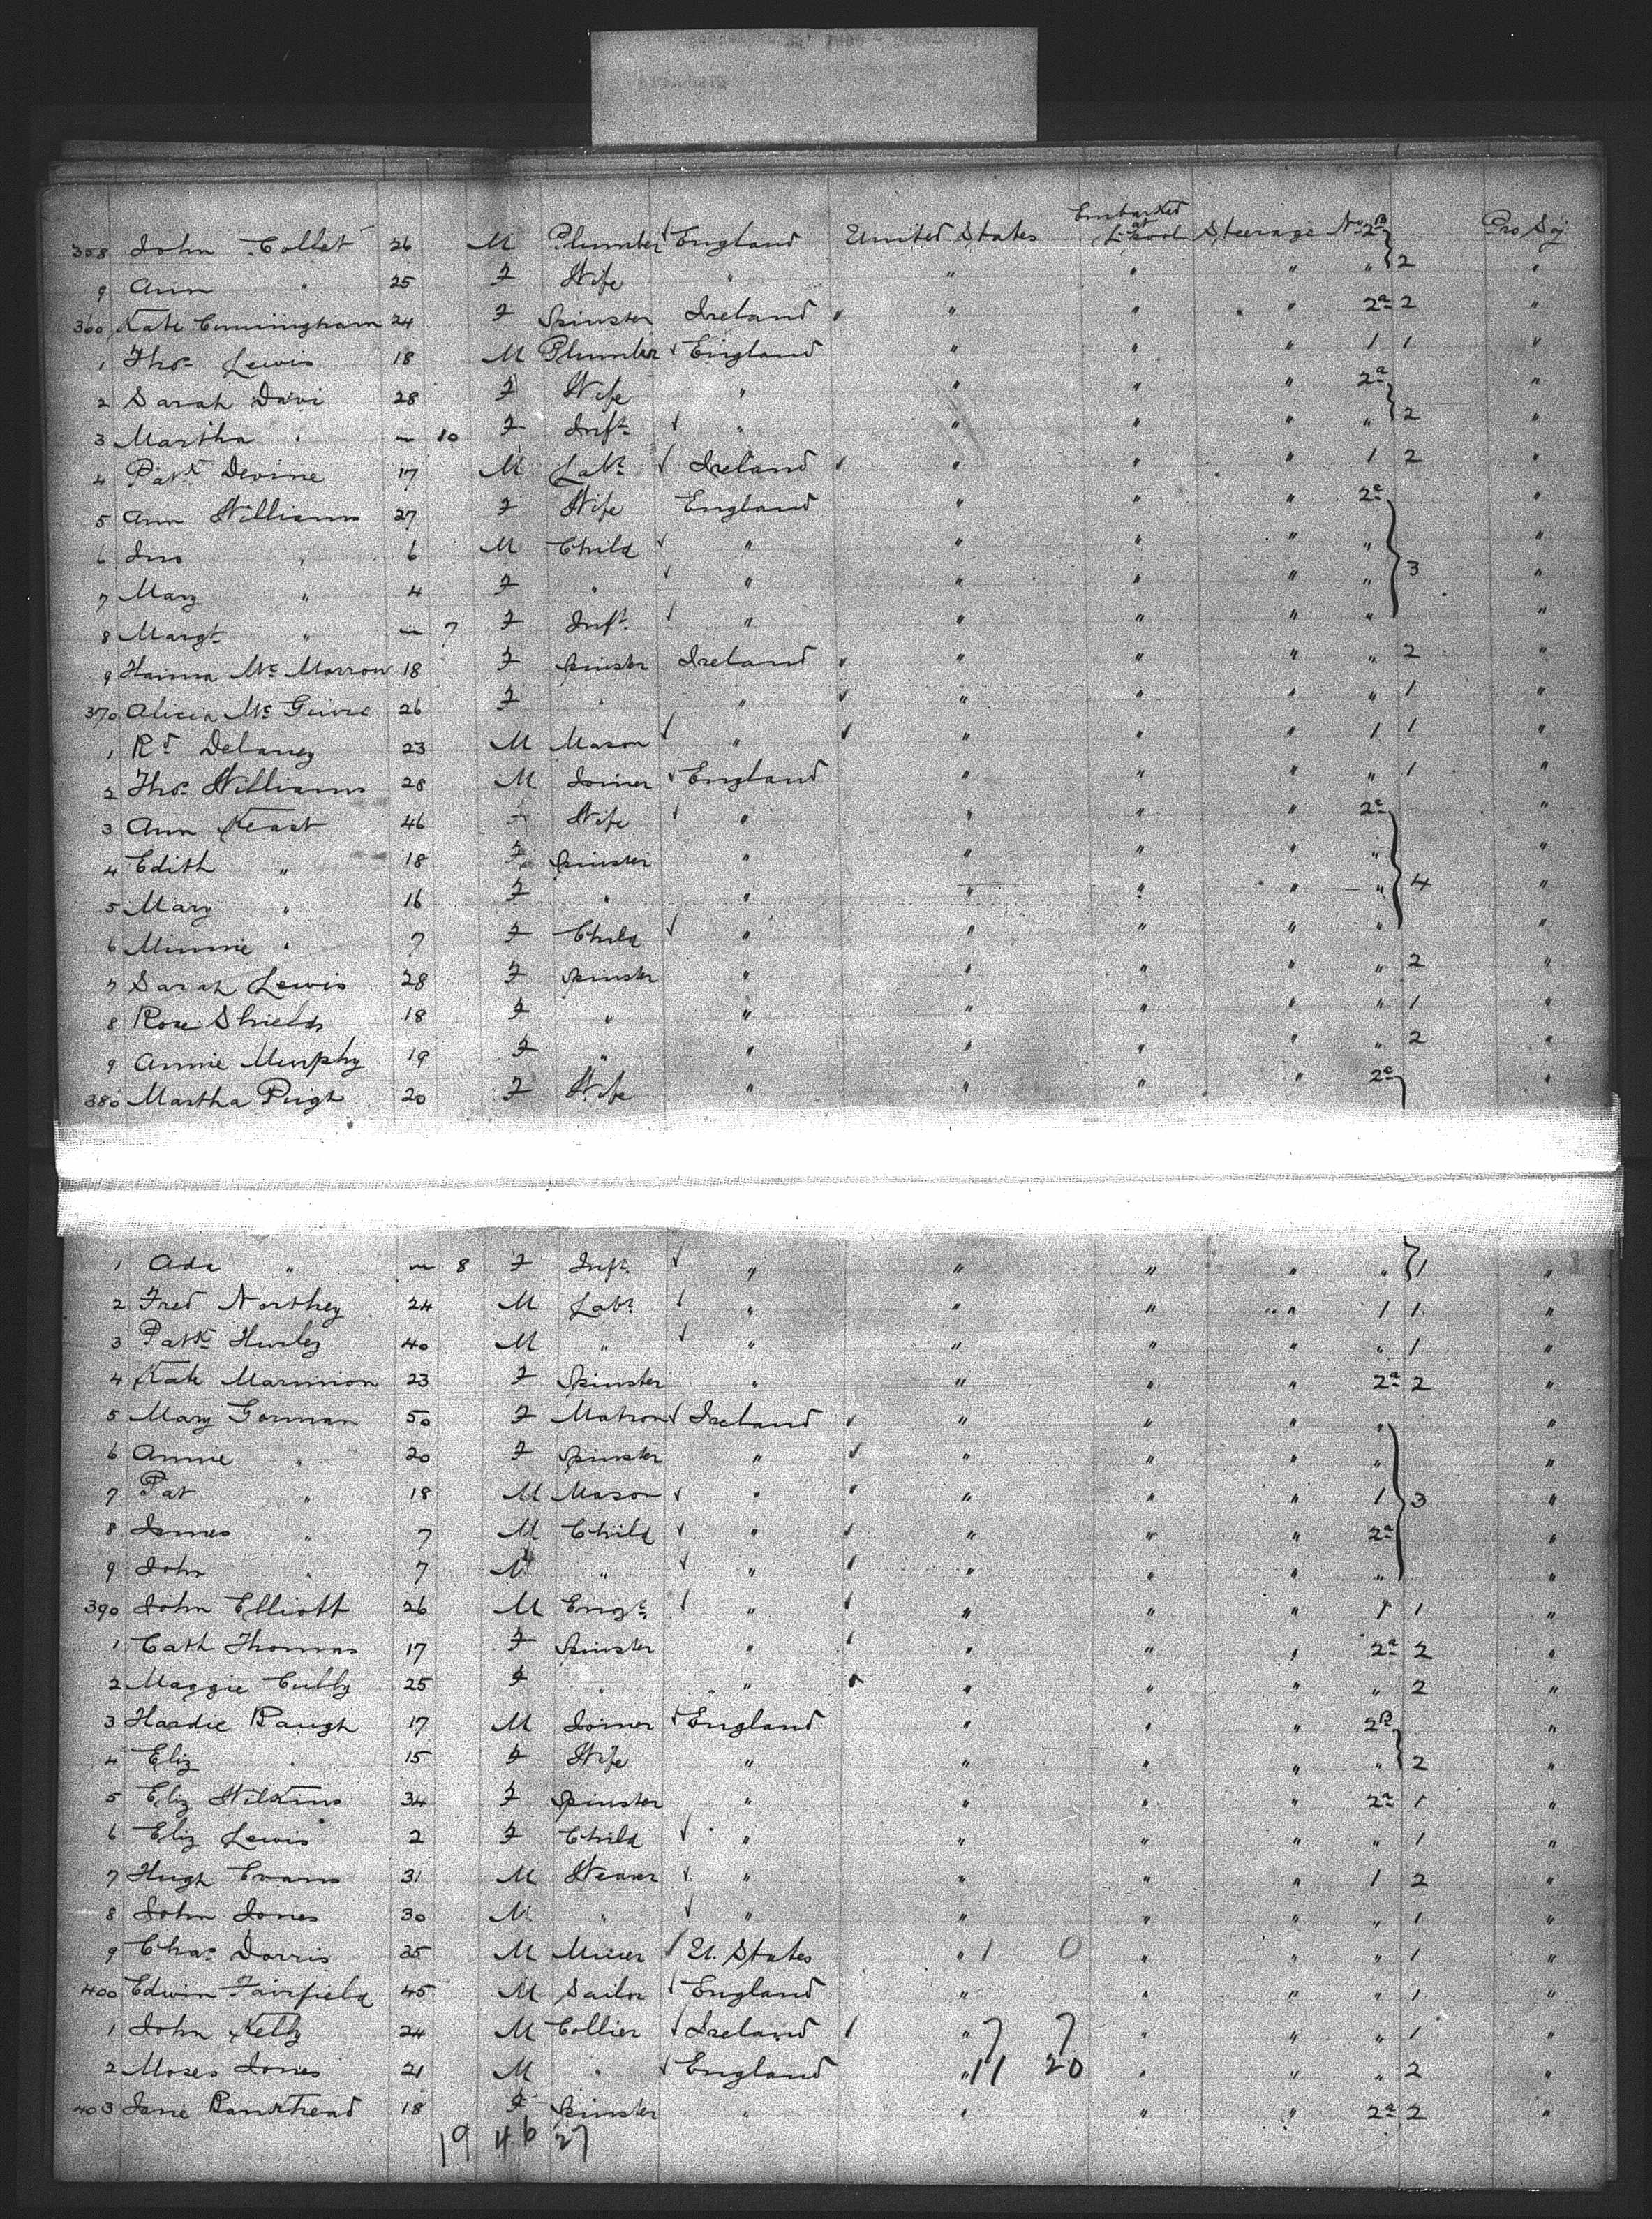 358 John Collet 26 M Plumber England United States Embarked at L'pool Steerage No 2B 2 Pro Soj
9 Ann " 25 F Wife " " " " " "
360 Kate Cunningham 24 F Spinster Ireland " " " 2a 2 "
1 Thos Lewis 18 M Plumber England " " " 1 1 "
2 Sarah Davi 28 F Wife " " " " 2a 2 "
3 Martha " 10 F Inft " " " " " "
4 Patk Devine 17 M Labr Ireland " " " 1 2 "
5 Ann Williams 27 F Wife England " " " 2a 3 "
6 Jno " 6 M Child " " " " " "
7 Mary " 4 F " " " " " " "
8 Margt " 7 F Inft " " " " " "
9 Hanna Mc Morrow 18 F Spinster Ireland " " " " 2 "
370 Alicia Mc Guire 26 F " " " " " " 1 "
1 Rd Delaney 23 M Mason " " " " 1 1 "
2 Thos Williams 28 M Joiner England " " " " 1 "
3 Ann Keast 46 Wife " " " " 2a 4 "
4 Edith " 18 F Spinster " " " " " "
5 Mary " 16 F " " " " " " "
6 Minnie " 7 F Child " " " " " "
7 Sarah Lewis 28 F Spinster " " " " " 2 "
8 Rose Shields 18 F " " " " " " 1 "
9 Annie Murphy 19 F " " " " " " 2 "
380 Martha Pugh 20 F Wife " " " " 2a "
1 Ada " 8 F Inft " " " " " 1 "
2 Fred Northey 24 M Labr " " " " 1 1 "
3 Patk Hurley 40 M " " " " " " 1 "
4 Kate Marmion 23 F Spinster " " " " 2a 2 "
5 Mary Gorman 50 F Matron Ireland " " " " 3 "
6 Annie " 20 F Spinster " " " " " "
7 Pat " 18 M Mason " " " " 1 "
8 James " 7 M Child " " " " 2a "
9 John " 7 M " " " " " " "
390 John Elliott 26 M Engr " " " " 1 1 "
1 Cath Thomas 17 F Spinster " " " " 2a 2 "
2 Maggie Cully 25 F " " " " " " 2 "
3 Hardie Baugh 17 M Joiner England " " " 2B 2 "
4 Eliz " 15 F Wife " " " " " "
5 Eliz Wilkins 34 F Spinster " " " " 2a 1 "
6 Eliz Lewis 2 F Child " " " " " 1 "
7 Hugh Evans 31 M Weaver " " " " 1 2 "
8 John Jones 30 M " " " " " " 1 "
9 Chas Dorris 35 M Miner U. States " 1 0 " " " 1 "
400 Edwin Fairfield 45 M Sailor England " " " " 1 "
1 John Kelly 24 M Collier Ireland " 7 7 " " " 1 "
2 Moses Jones 21 M " England " 11 20 " " " 2 "
403 Jane 18 F Spinster " " " " 2a 2 "
19 46 27